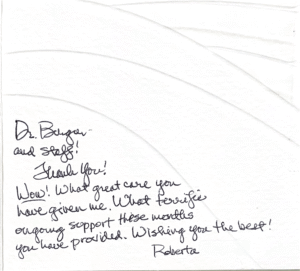 Dr. Barger
and staff!
Thank You!
Wow! What great care you
have given me. What terrific
ongoing support these months
you have provided. Wishing you the best!
Roberta